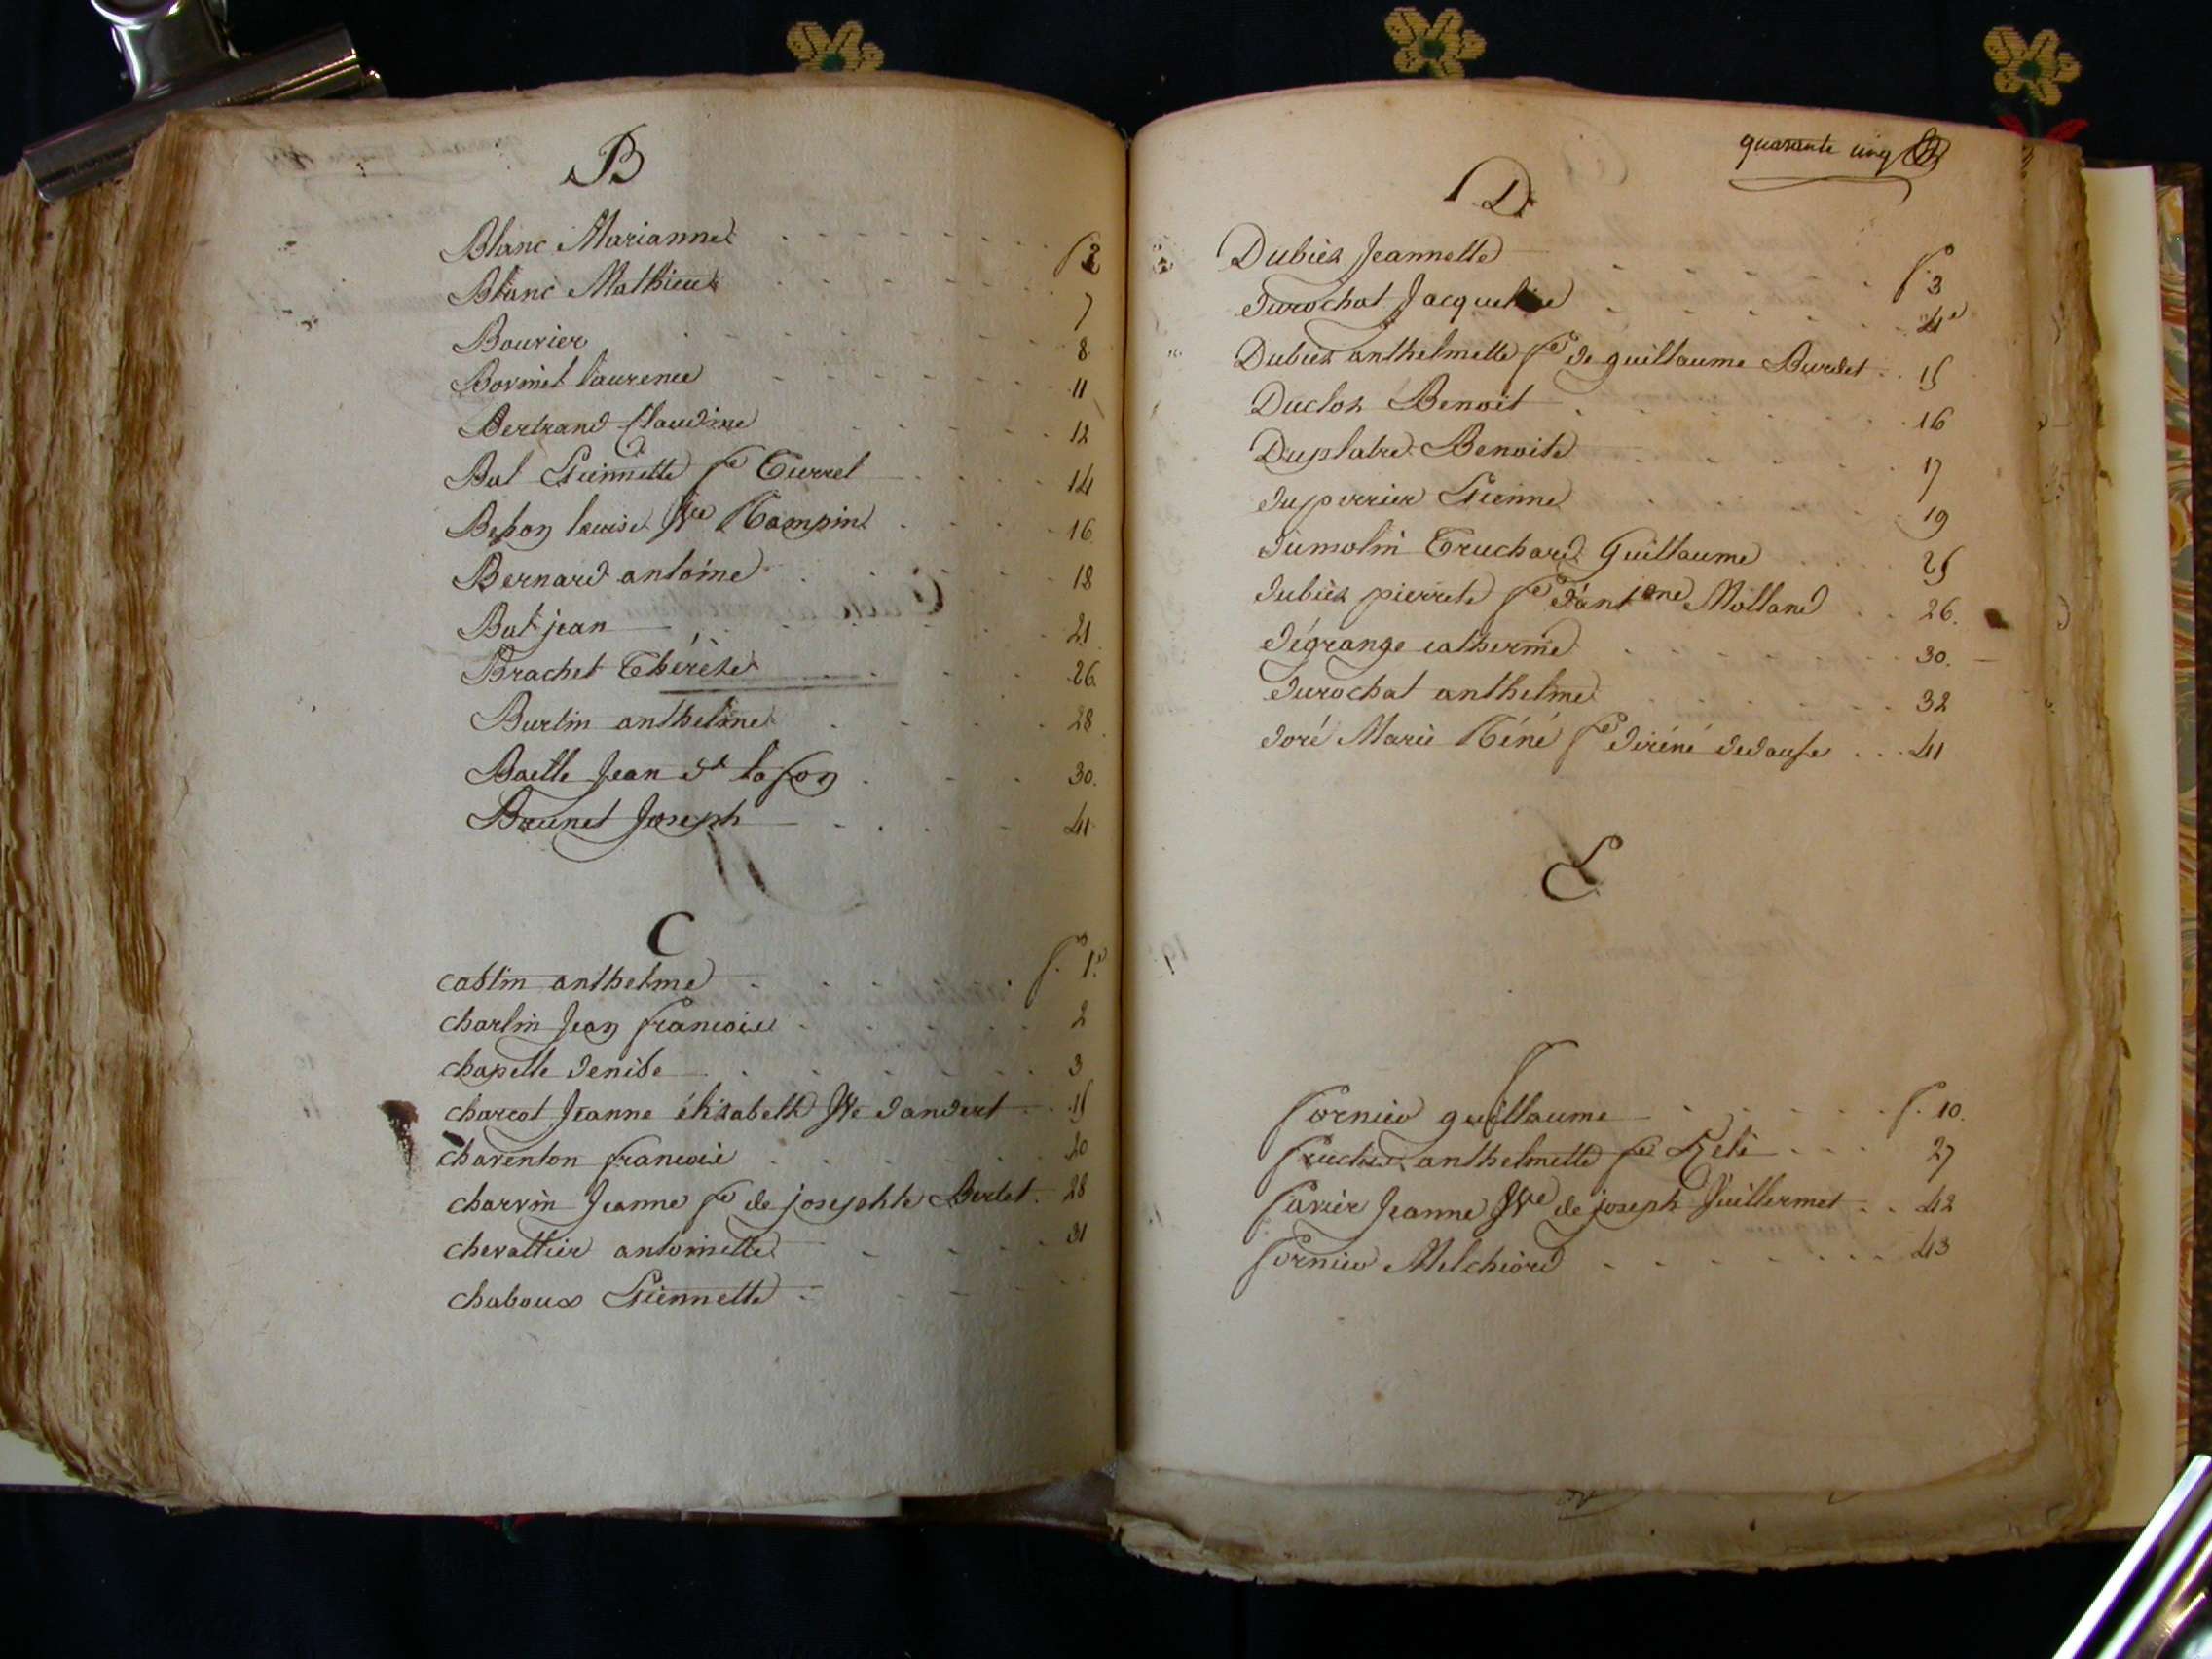 B
Blanc Marianne f° 2
Blanc Mathieu 7
Bouvier 8
Bornet laurence 11
Bertrand Claudine 12
Bal Etiennette fe Turrel 14
louise Vve Rampin 16
Bernard antoine 18
Bat jean 21
Brachet Thérèse 26
Burtin anthelme 28
Baille Jean dt lafon 30.
Brunet Joseph 41
C
Castin anthelme f. 1er
charlin Jean francois 2
chapelle denise 3
charcot Jeanne élisabeth Vve dandert 15
charenton francois 20
charvin Jeanne fe de josephte Bertet 28
chevallier antoinette 31
chaboux Etiennette
quarante cinq
D
Dubiez Jeannette f° 3
durochat Jacqueline 4e
Dubiez anthelmette fe de guillaume Burdet 15
Duclos Benoit 16
Duplatre Benoite 17
duperrier Etienne 19
dumolin Truchard Guillaume 25
dubiez pierrete fe d'antoine Molland 26.
dégrange catherine 30.
durochat anthelme 32
doré Marie Réné fe 41
E
F
fornier guillaume f. 10.
anthelmette fe 27
favier Jeanne Vve de joseph Guillermet 42
fornier Melchiord 43